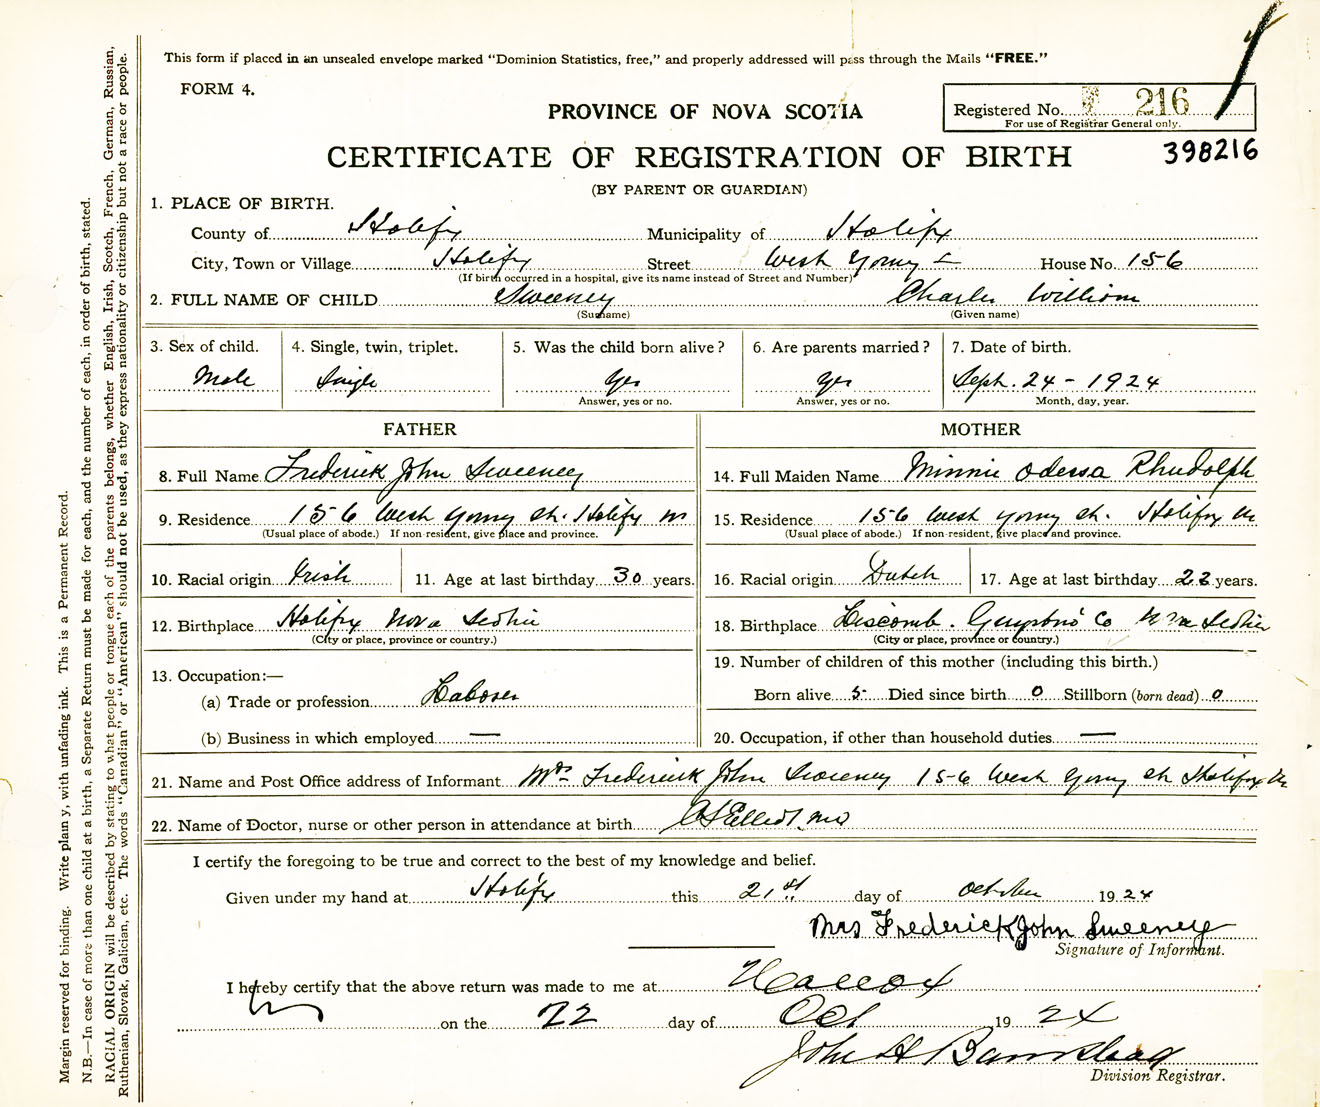 This form if placed in an unsealed envelope marked "Dominion Statistics, free," and properly addressed will pass through the Mails "FREE."
FORM 4.
PROVINCE OF NOVA SCOTIA
Registered No. 216
For use of Registrar General only.
CERTIFICATE OF REGISTRATION OF BIRTH
398216
(BY PARENT OR GUARDIAN)
1. PLACE OF BIRTH.
County of Halifax Municipality of Halifax
City, Town or Village Halifax Street West Young St House No. 156
(If birth occurred in a hospital, give its name instead of Street and Number)
2. FULL NAME OF CHILD Sweeney Charles William
(Surname) (Given name)
3. Sex of child. 4. Single, twin, triplet. 5. Was the child born alive? 6. Are parents married? 7. Date of birth.
Male Single Yes Yes Sept. 24 - 1924
Answer, yes or no. Answer, yes or no. Month, day, year.
FATHER MOTHER
8. Full Name Frederick John Sweeney 14. Full Maiden Name Minnie Odessa Rhudolph
9. Residence 156 West Young St. Halifax 15. Residence 156 West Young St. Halifax
(Usual place of abode.) If non-resident, give place and province. (Usual place of abode.) If non-resident, give place and province.
10. Racial origin Irish 11. Age at last birthday 30 years. 16. Racial origin Dutch 17. Age at last birthday years.
12. Birthplace Halifax Nova Scotia 18. Birthplace Liscomb. Guysboro Co Nova Scotia
(City or place, province or country.) (City or place, province or country.)
13. Occupation:— 19. Number of children of this mother (including this birth.)
(a) Trade or profession Laborer Born alive 5 Died since birth 0 Stillborn (born dead) 0
(b) Business in which employed — 20. Occupation, if other than household duties —
21. Name and Post Office address of Informant Mrs Frederick John Sweeney 156 West Young St Halifax
22. Name of Doctor, nurse or other person in attendance at birth MD
I certify the foregoing to be true and correct to the best of my knowledge and belief.
Given under my hand at Halifax this 21st day of October 1924
Mrs Frederick John Sweeney
Signature of Informant.
I hereby certify that the above return was made to me at
on the 22 day of Oct 1924
John H
Division Registrar.
Margin reserved for binding. Write plainy, with unfading ink. This is a Permanent Record.
N.B.—In case of more than one child at a birth, a Separate Return must be made for each, and the number of each, in order of birth, stated.
RACIAL ORIGIN will be described by stating to what people or tongue each of the parents belongs, whether English, Irish, Scotch, French, German, Russian,
Ruthenian, Slovak, Galician, etc. The words "Canadian" or "American" should not be used, as they express nationality or citizenship but not a race or people.